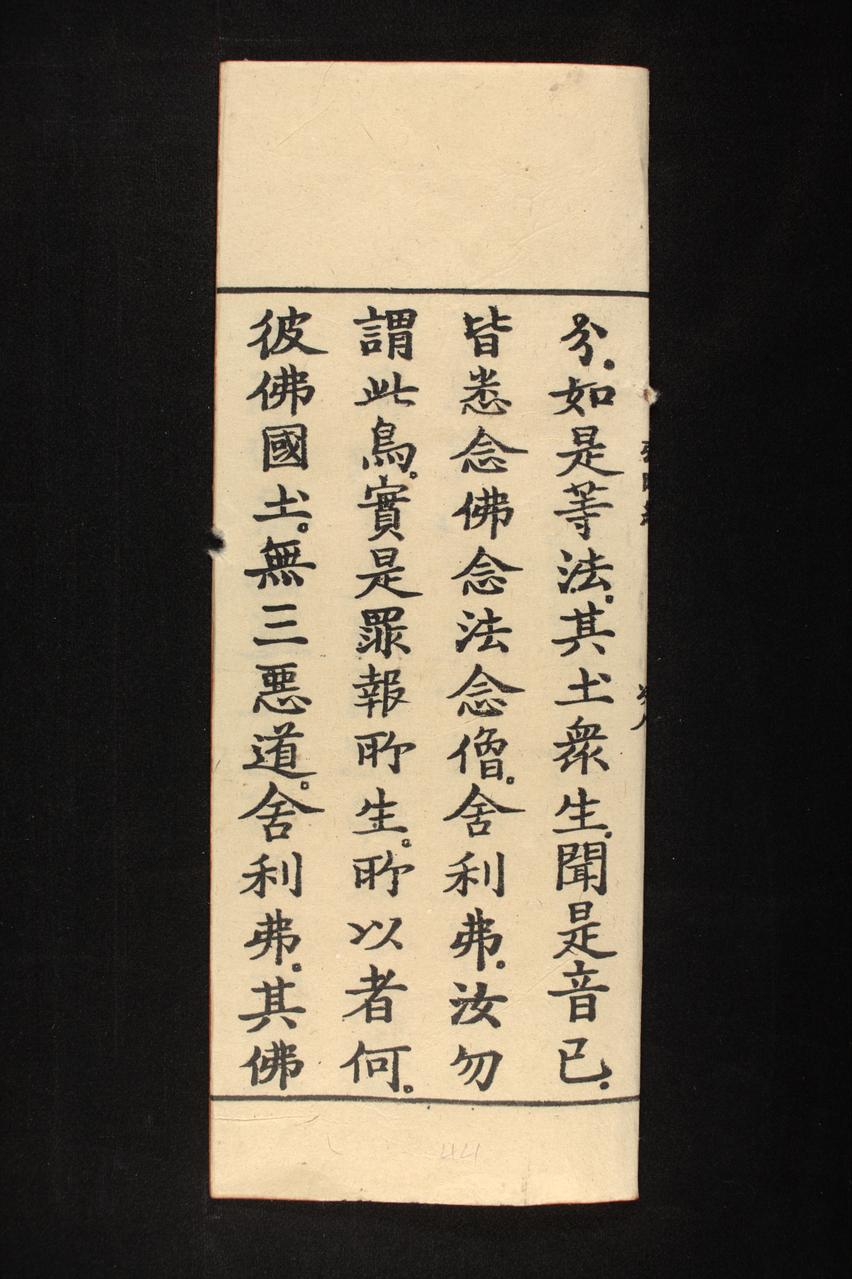 分。如是等法。其土眾生。聞是音已。
皆悉念佛念法念僧。舍利弗。汝勿
謂此鳥。實是罪報所生。所以者何。
彼佛國土。無三惡道。舍利弗。其佛
44